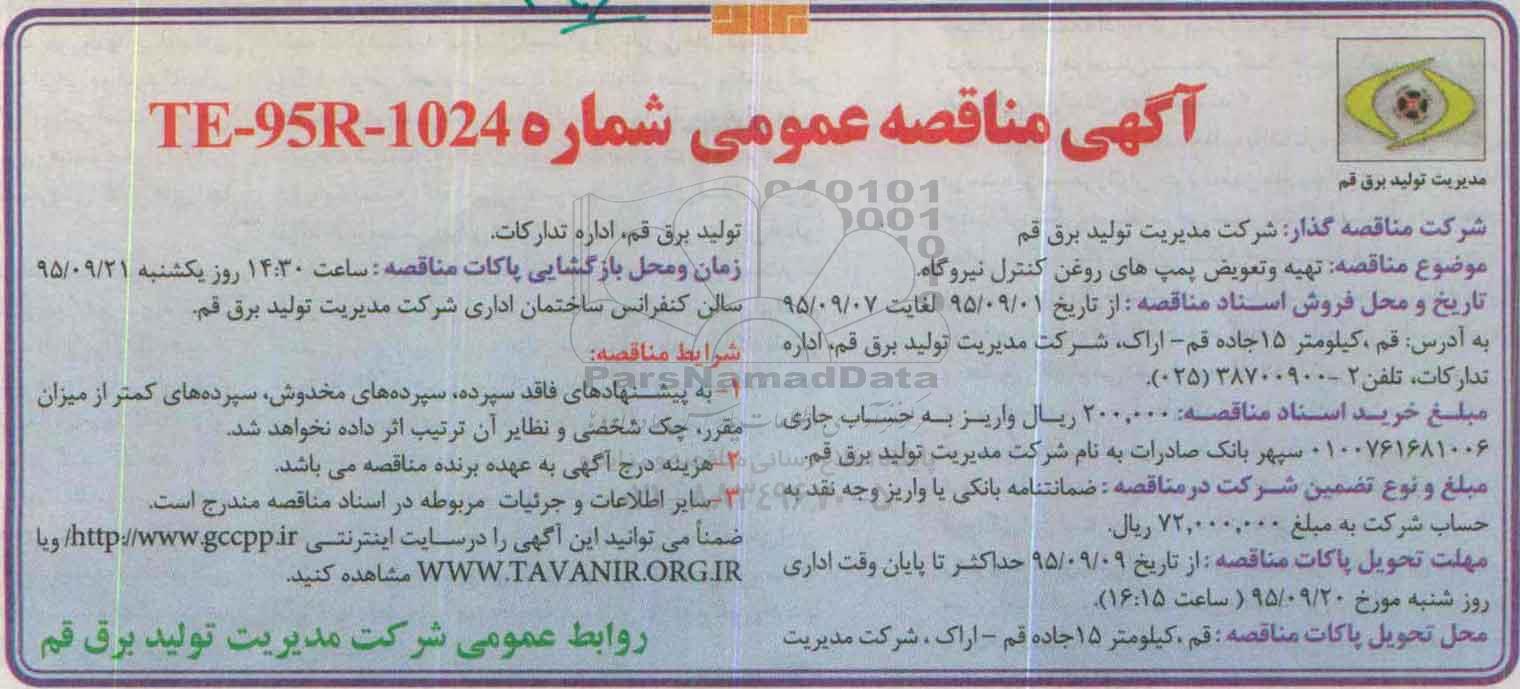 آگهی مناقصه عمومی شماره TE-95R-1024
مدیریت تولید برق قم
شرکت مناقصه گذار: شرکت مدیریت تولید برق قم
موضوع مناقصه: تهیه وتعویض پمپ های روغن کنترل نیروگاه.
تاریخ و محل فروش اسناد مناقصه: از تاریخ ۹۵/۰۹/۰۱ لغایت ۹۵/۰۹/۰۷
به آدرس: قم ،کیلومتر ۱۵جاده قم- اراک، شرکت مدیریت تولید برق قم، اداره
تدارکات، تلفن۲ -۳۸۷۰۰۹۰۰ (۰۲۵).
مبلغ خرید اسناد مناقصه: ۲۰۰,۰۰۰ ریال واریز به حساب جاری
۰۱۰۰۷۶۱۶۸۱۰۰۶ سپهر بانک صادرات به نام شرکت مدیریت تولید برق قم.
مبلغ و نوع تضمین شرکت درمناقصه: ضمانتنامه بانکی یا واریز وجه نقد به
حساب شرکت به مبلغ ۷۲,۰۰۰,۰۰۰ ریال.
مهلت تحویل پاکات مناقصه: از تاریخ ۹۵/۰۹/۰۹ حداکثر تا پایان وقت اداری
روز شنبه مورخ ۹۵/۰۹/۲۰ ( ساعت ۱۶:۱۵).
محل تحویل پاکات مناقصه: قم ،کیلومتر ۱۵جاده قم -اراک ، شرکت مدیریت
تولید برق قم، اداره تدارکات.
زمان ومحل بازگشایی پاکات مناقصه: ساعت ۱۴:۳۰ روز یکشنبه ۹۵/۰۹/۲۱
سالن کنفرانس ساختمان اداری شرکت مدیریت تولید برق قم.
شرایط مناقصه:
۱- به پیشنهادهای فاقد سپرده، سپرده‌های مخدوش، سپرده‌های کمتر از میزان
مقرر، چک شخصی و نظایر آن ترتیب اثر داده نخواهد شد.
۲- هزینه درج آگهی به عهده برنده مناقصه می باشد.
۳-سایر اطلاعات و جرئیات مربوطه در اسناد مناقصه مندرج است.
ضمناً می توانید این آگهی را درسایت اینترنتی http://www.gccpp.ir/ ویا
WWW.TAVANIR.ORG.IR مشاهده کنید.
روابط عمومی شرکت مدیریت تولید برق قم
ParsNamadData